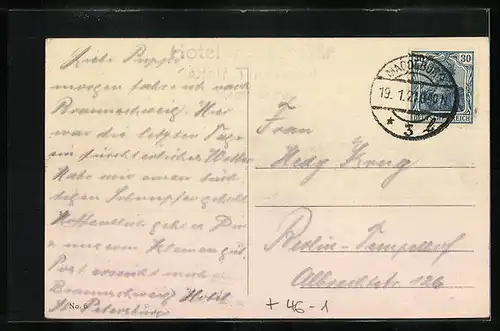 Hotel
Liebe Puppe
morgen fahre ich nach
Braunschweig. Hier
war die letzten Tage
ein fürchterliches Wetter
Habe mir einen tüch
tigen Schnupfen geholt
Hoffentlich geht es Dir
u. unserm Kleinen gut.
Post erreicht mich
Braunschweig Hotel
St. Petersburg
No. 6
MAGDEBURG
19. 1. 21
* 3
30
Frau
Hedy Krug
Berlin-Tempelhof
Albrechtstr. 126
+ 46-1